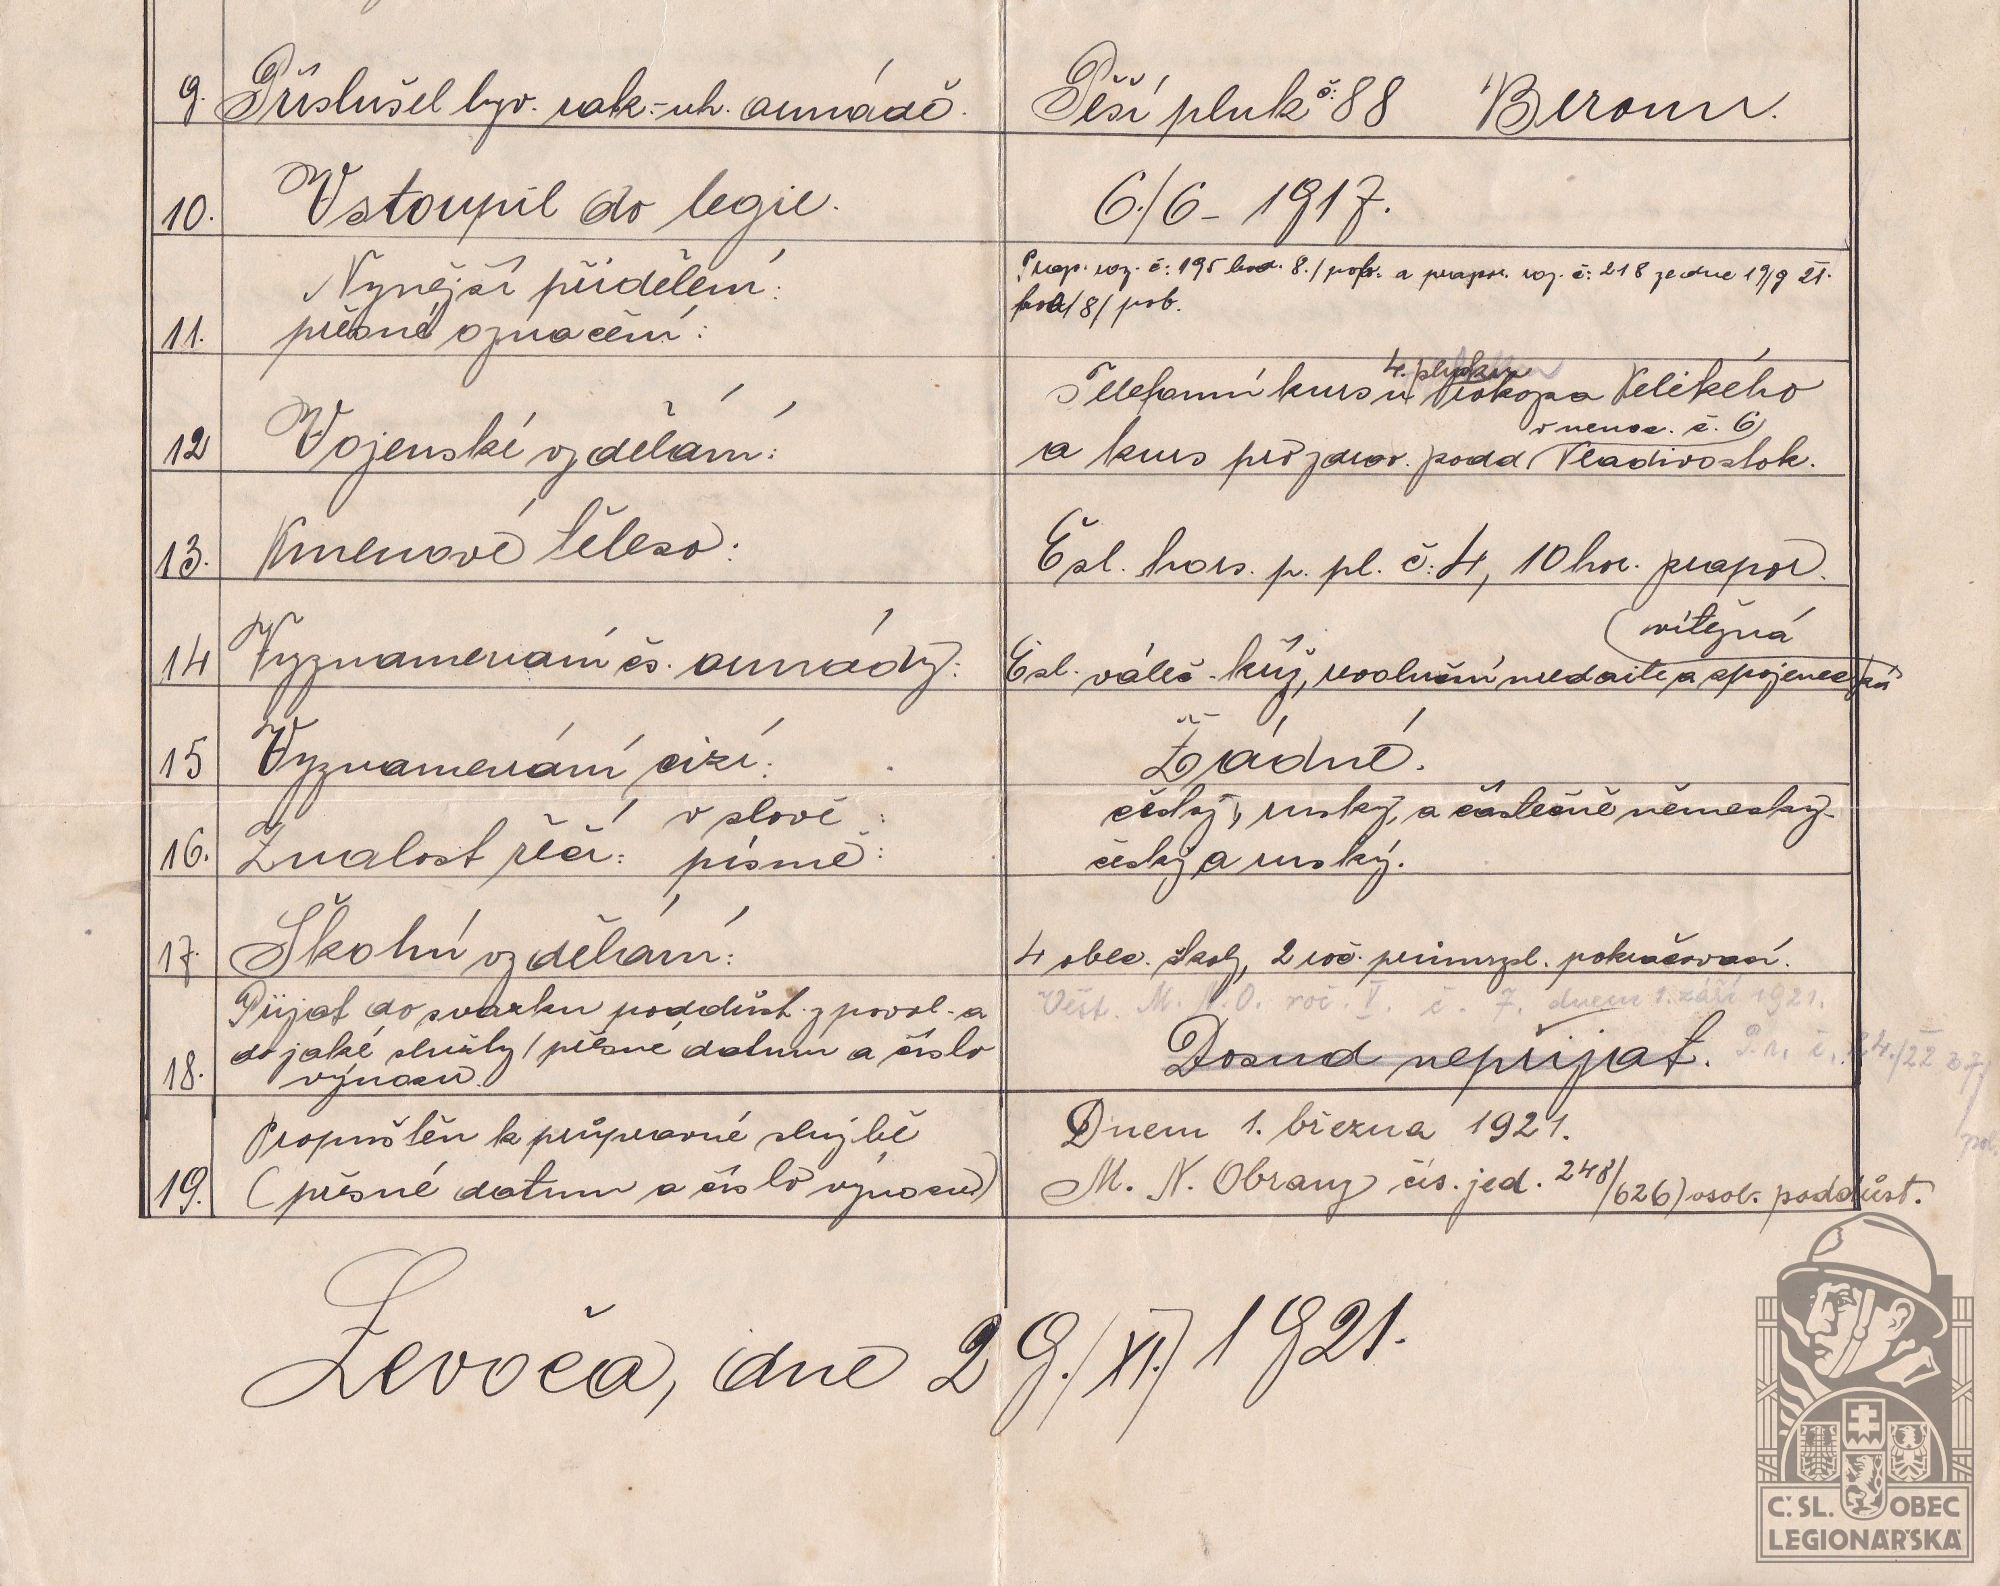 9. Příslušel býv. rak.-uh. armádě. Pěší pluk č. 88 Beroun.
10. Vstoupil do legie. 6./6 - 1917.
Nynější přidělení: Prap. roz. č: 195 bod. 8./pob. a prapor. roz. č: 218 ze dne 19/9 21.
11. přesné označení: bod/8/ pob.
4. pluku
Telefonní kurs u Prokopa Velikého
v nemoc. č. 6
12 Vojenské vzdělání: a kurs pro zdrav. podd. Vladivostok.
13. Kmenové těleso: Čsl. hors. p. pl. č: 4, 10 hor. prapor.
vítězná
14 Vyznamenání čs. armády: Čsl. váleč. kříž, revoluční medaile a spojenecká
15 Vyznamenání cizí: Žádné.
v slově: český, ruský, a částečně německý.
16. Znalost řečí: písmě: český a ruský.
17. Školní vzdělání: 4 obec. školy, 2 roč. průmysl. pokračovací.
Věst. M. N. O. roč. V. č. 7. dnem 1. září 1921.
Přijat do svazku poddůst. z povol. a
do jaké služby / přesné datum a číslo Dosud nepřijat. P. r. č. 24./22 z 7/
18. výnosu pob.
Propuštěn k průpravné službě Dnem 1. března 1921.
19. (přesné datum a číslo výnosu) M. N. Obrany čís. jed. 248/626) osob. poddůst.
Levoča, dne 29./XI.) 1921.
Č.SL. OBEC
LEGIONÁŘSKÁ